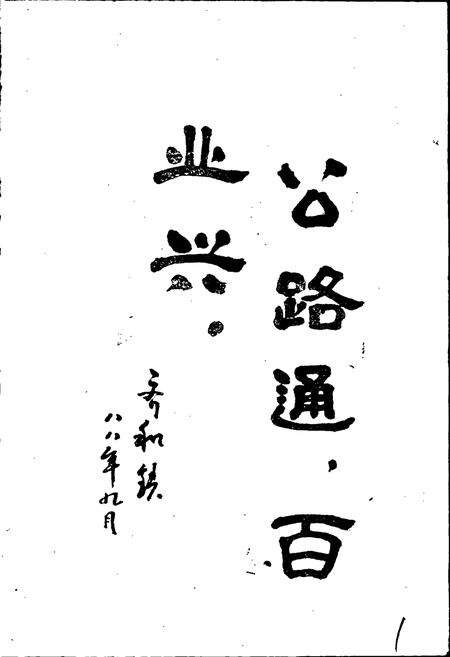 公路通，百
业兴.
齐和鎮
八八年九月